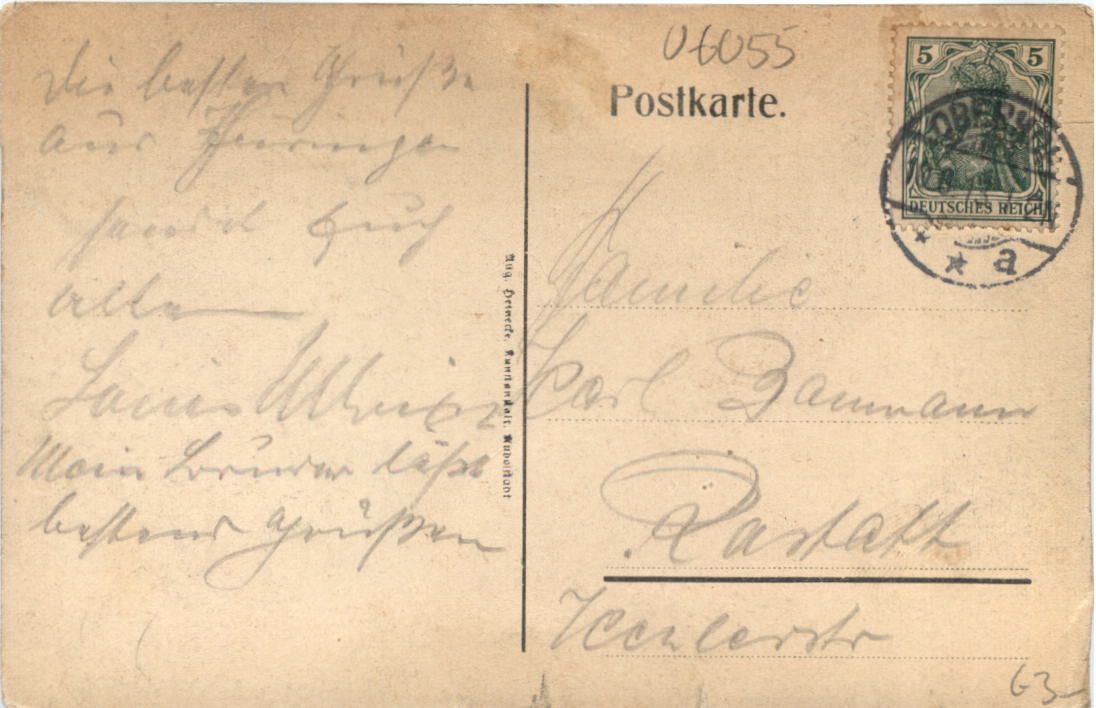 06055
Postkarte.
5 5
DEUTSCHES REICH
a
Die besten Grüße
aus Thüringen
sendet Euch
allen
Louis
Mein Bruder läßt
bestens Grüßen
Aug. Heinecke, Kunstanstalt, Rudolstadt
Familie
Karl Bammann
Rastatt
Kehlerstr
63